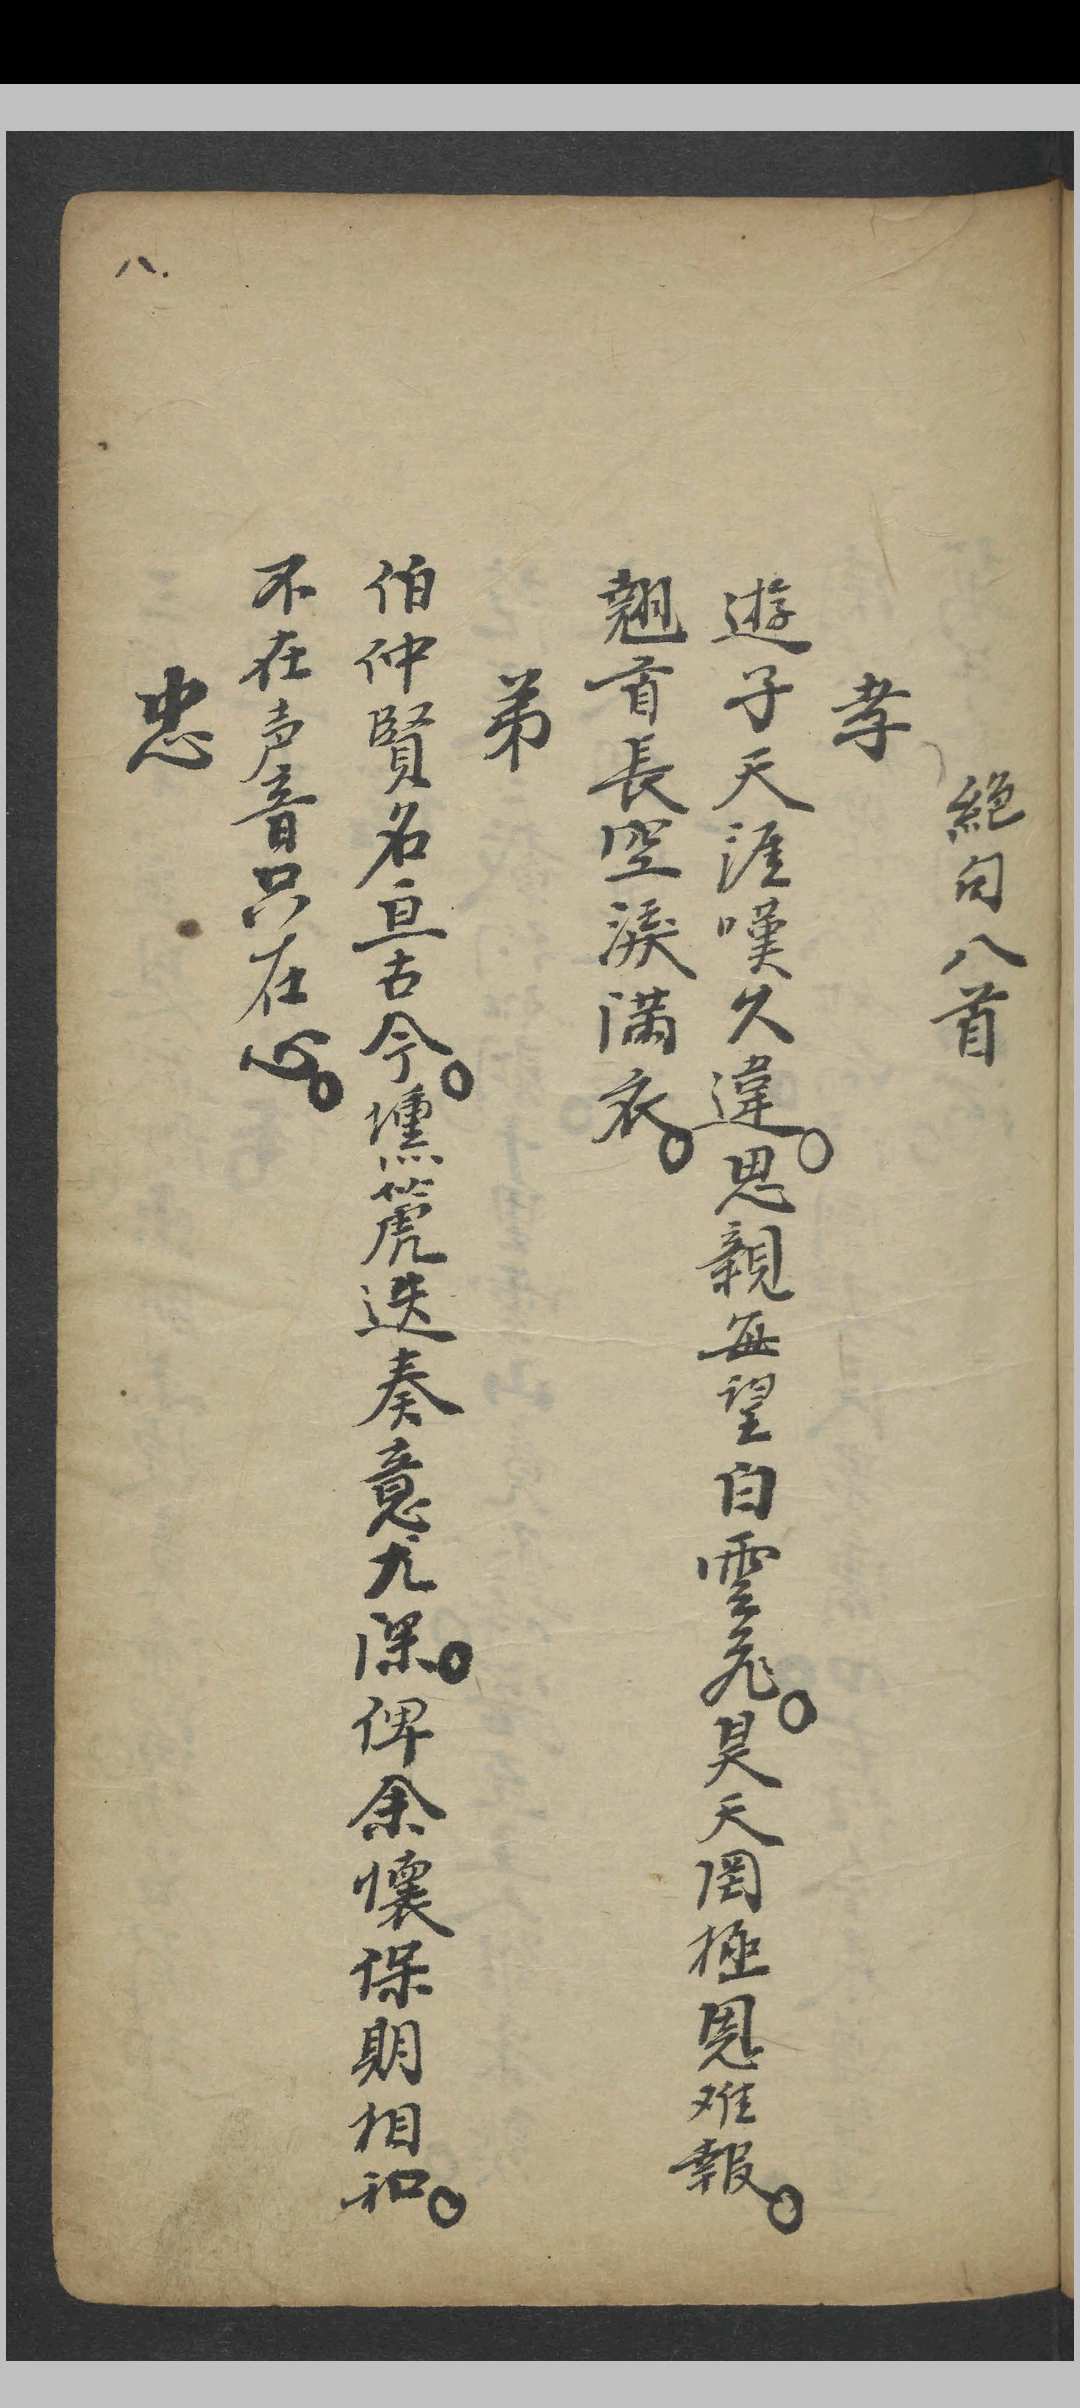 絕句八首
孝
遊子天涯嘆久違。思親每望白雲飛。昊天罔極恩难報。
翹首長空淚满衣。
弟
伯仲賢名亘古今。壎篪迭奏意尤深。俾余懷保期相和。
不在声音只在心。
忠
八.